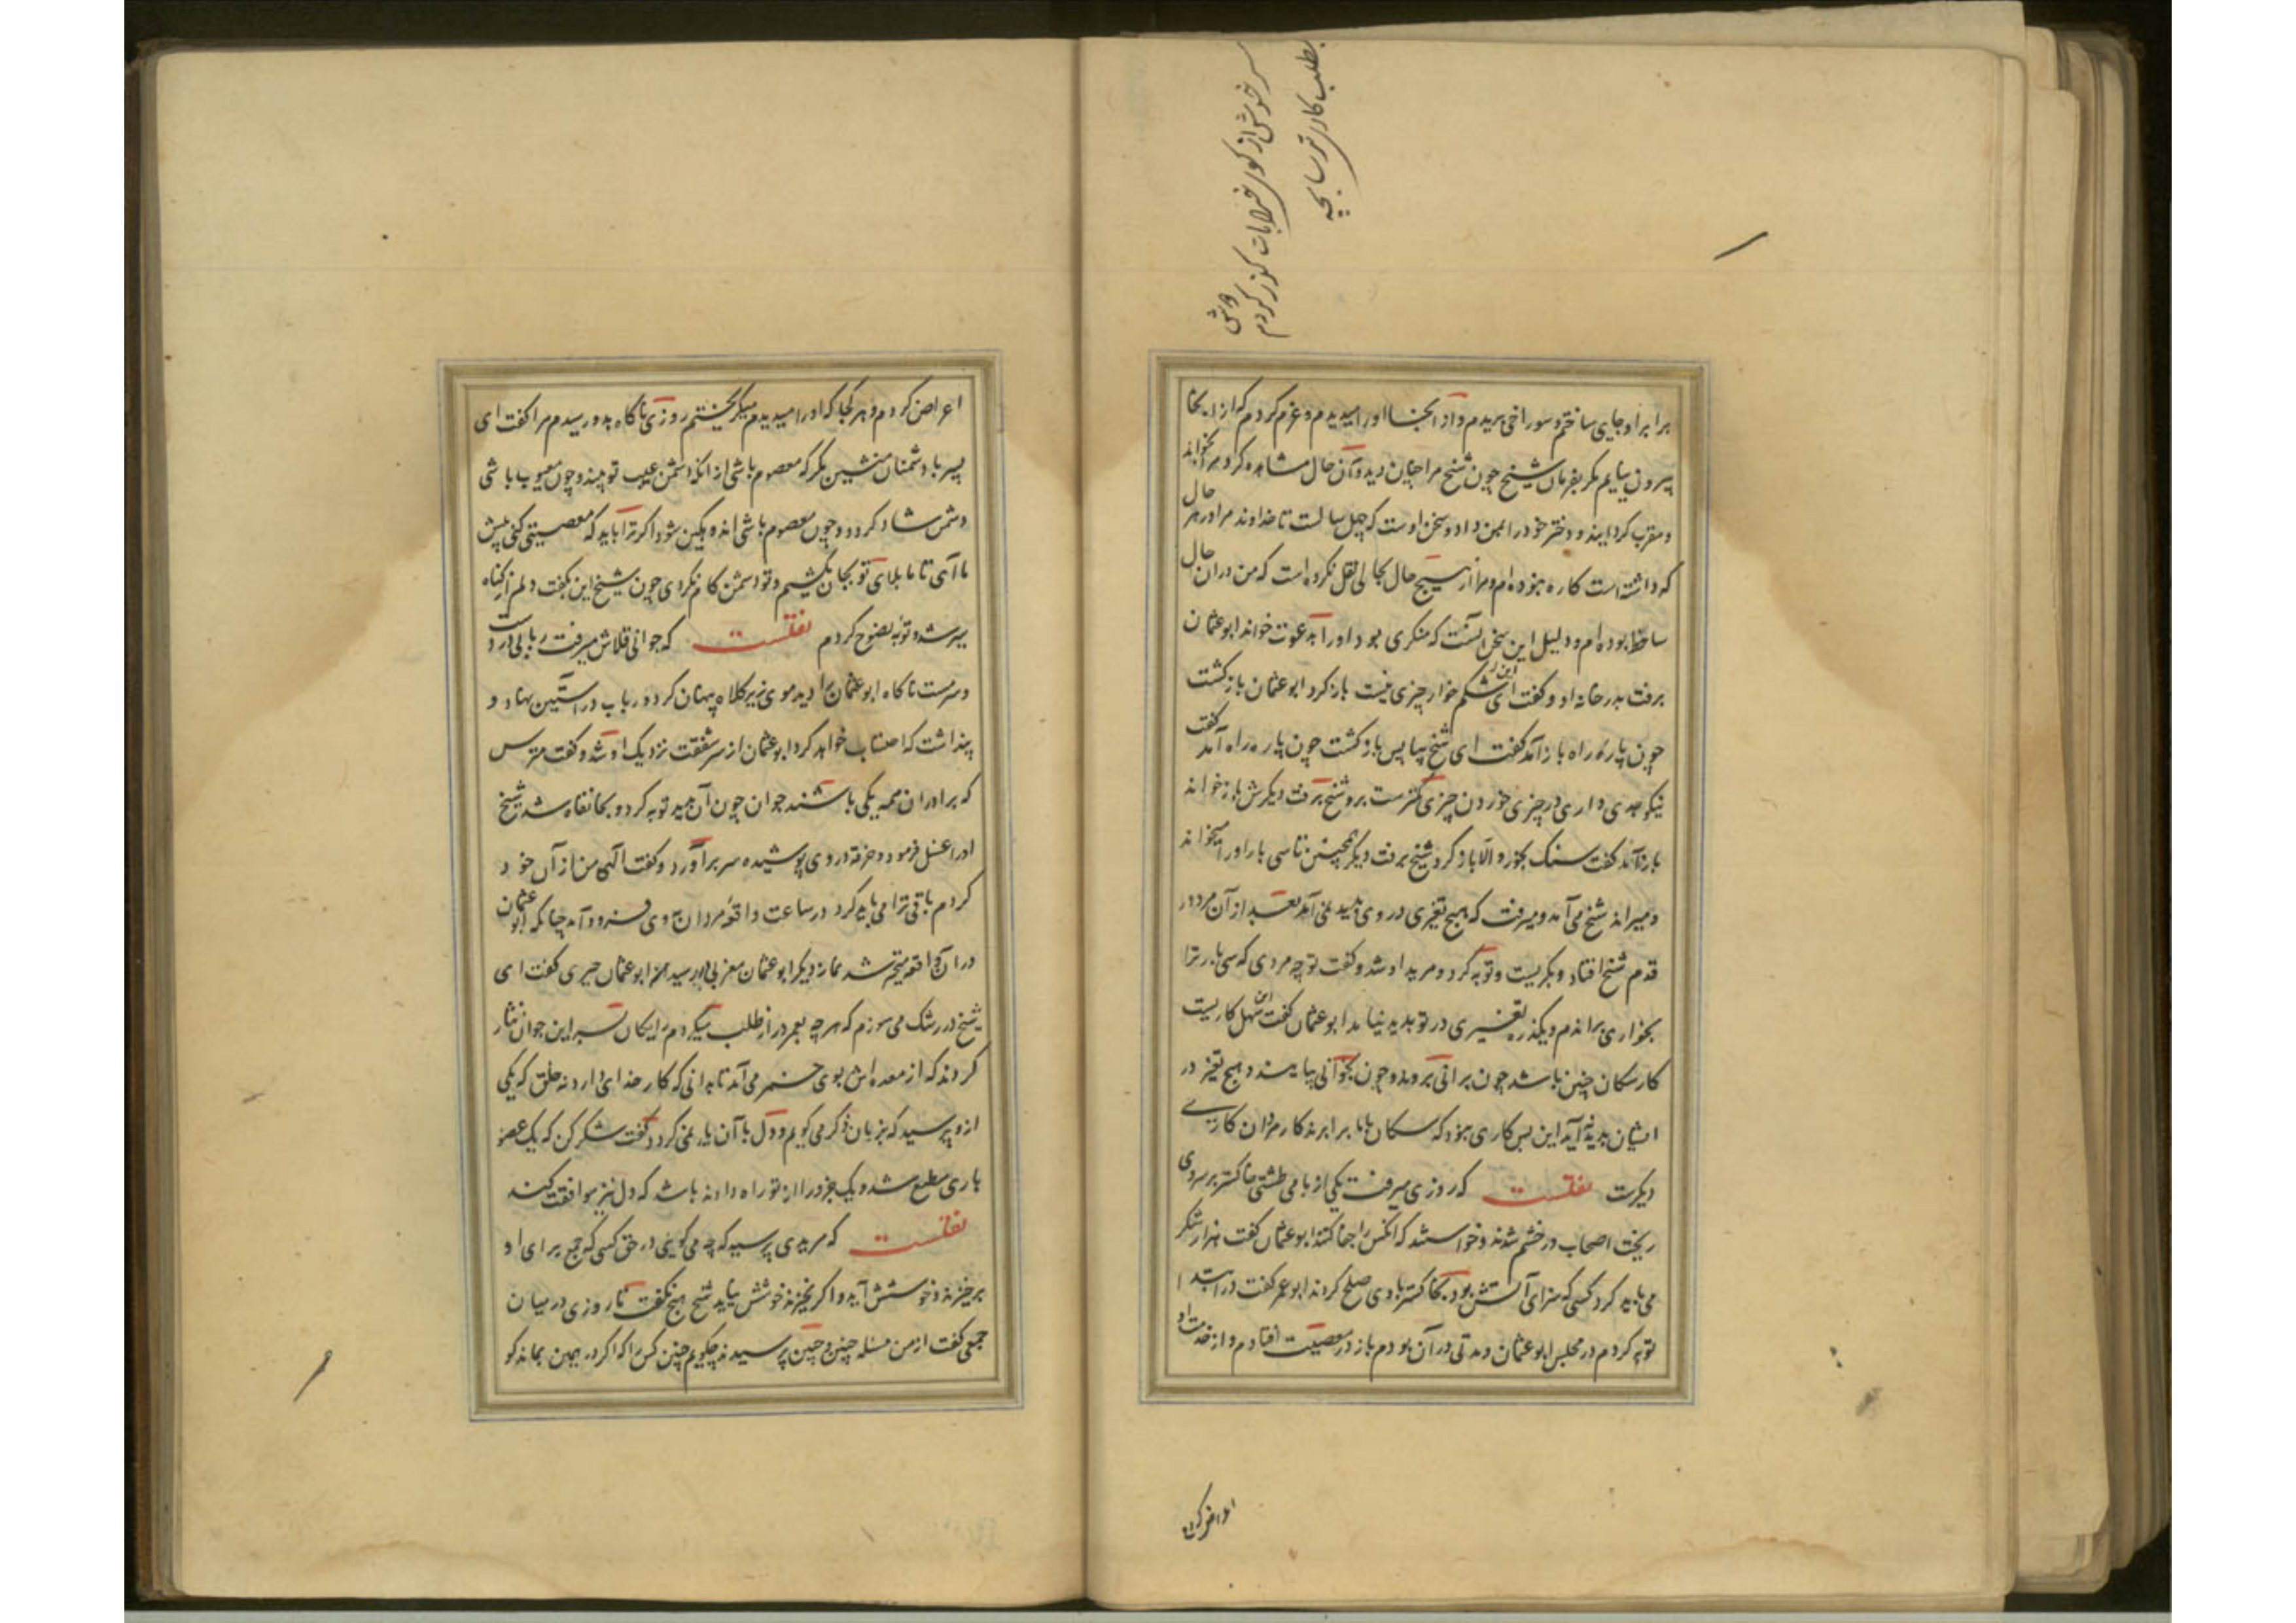 سر خوش از کوی خرابات گذر کردم دوش
بطلب کاری ترسا بچه
برابر او جای ساختم و سوراخی بریدم و از آنجا او را میدیدم و عزم کردم که از اینجا
بیرون نیایم مکر بفرمان شیخ چون شیخ مرا چنان دید و آن حال مشاهده کرد مرا بخواند
و مقرب کردانید و دختر خود را بمن داد و سخن اوست که چهل سالست تا خداوند مرا در هر حال
که داشته است کاره نبوده ام و مرا از هیچ حال بحالی نقل نکرده است که من در آن حال
ساخط بوده ام و دلیل این سخن آنست که منکری بود او را بدعوت خواند ابو عثمان
برفت بدر خانه او و کفت ای شکم خوار چیزی نیست باز کرد ابو عثمان باز کشت
چون پاره راه باز آمد کفت ای شیخ بیا پس باز کشت چون پاره راه آمد کفت
نیکو جدی داری در چیزی خوردن چیزی کمترست برو شیخ برفت دیکرش باز خواند
باز آمد کفت سنک بخور و الا باز کرد شیخ برفت دیکر همچنین تا سی بار او را میخواند
و میراند شیخ می آمد و میرفت که هیچ تغیری در وی پدید نمی آمد بعد از آن مرد در
قدم شیخ افتاد و بکریست و توبه کرد و مرید او شد و کفت تو چه مردی که سی بار ترا
بخواری براندم و یکذره تغییری در تو پدید نیامد ابو عثمان کفت این سهل کاریست
کار سکان چنین باشد چون برانی بروند و چون بخوانی بیایند و هیچ تغیر در
ایشان پدید نیاید این بس کاری نبود که سکان با ما برابرند کار مردان کاری
دیکرست نقلست که روزی میرفت یکی از بامی طشتی خاکستر بر سر وی
ریخت اصحاب در خشم شدند و خواستند که آنکس را جفا کنند ابو عثمان کفت هزار شکر
می باید کرد کسی که سزای آتش بود بخاکستر با وی صلح کردند ابو عمر کفت در ابتدا
توبه کردم در مجلس ابو عثمان و مدتی در آن بودم باز در معصیت افتادم و از خدمت او
اعراض کردم
اعراض کردم و هر کجا که او را میدیدم میکریختم روزی ناکاه بدو رسیدم مرا کفت ای
پسر با دشمنان منشین مکر که معصوم باشی از آنکه دشمن عیب تو بیند و چون معیوب باشی
دشمن شاد کردد و چون معصوم باشی اندوهکین شود اکر ترا باید که معصیتی کنی پیش
ما آی تا ما بلای تو بجان بکشیم و تو دشمن کام نکردی چون شیخ این بکفت دلم از کناه
سیر شد و توبه نصوح کردم نقلست که جوانی قلاش میرفت ربابی در دست
و سرمست ناکاه ابو عثمان را دید موی زیر کلاه پنهان کرد و رباب در آستین نهاد و
پنداشت که احتساب خواهد کرد ابو عثمان از سر شفقت نزدیک او شد و کفت مترس
که برادران همه یکی باشند جوان چون آن بدید توبه کرد و بخانقاه شد شیخ
او را غسل فرمود و خرقه در وی پوشیده سر برآورد و کفت الهی من از آن خود
کردم باقی ترا می باید کرد در ساعت واقعه مردان بروی فرود آمد چنانکه ابو عثمان
در آن واقعه متحیر شد نماز دیکر ابو عثمان مغربی در رسید ابو عثمان حیری کفت ای
شیخ در رشک می سوزم که هر چه بعمر دراز طلب میکردم رایکان بسر این جوان نثار
کردند که از معده اش بوی خمر می آمد تا بدانی که کار خدای دارد نه خلق که یکی
ازو پرسید که بزبان ذکر می کویم و دل با آن یار نمی کردد کفت شکر کن که یک عضو
باری مطیع شد و یک جزو را از تو راه دادند باشد که دل نیز موافقت کند
نقلست که مریدی پرسید که چه می کویی در حق کسی که جمع برای او
برخیزند و خوشش آید و اکر نخیزند خوشش نیاید شیخ هیچ نکفت تا روزی در میان
جمعی کفت از من مسئله چنین و چنین پرسیدند چکویم چنین کس را که اکر در همین بماند کو